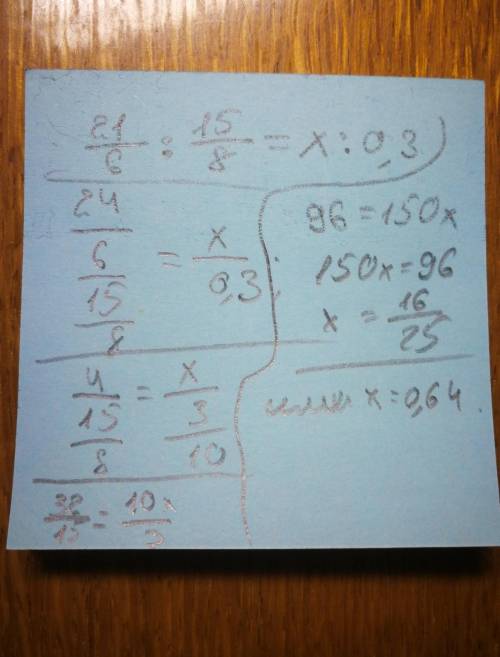 21/6 : 15/8 = x : 0,3
24/6/15/8 = x/0,3
4/15/8 = x/3/10
32/15 = 10x/3
96 = 150x
150x = 96
x = 16/25
или x = 0,64.